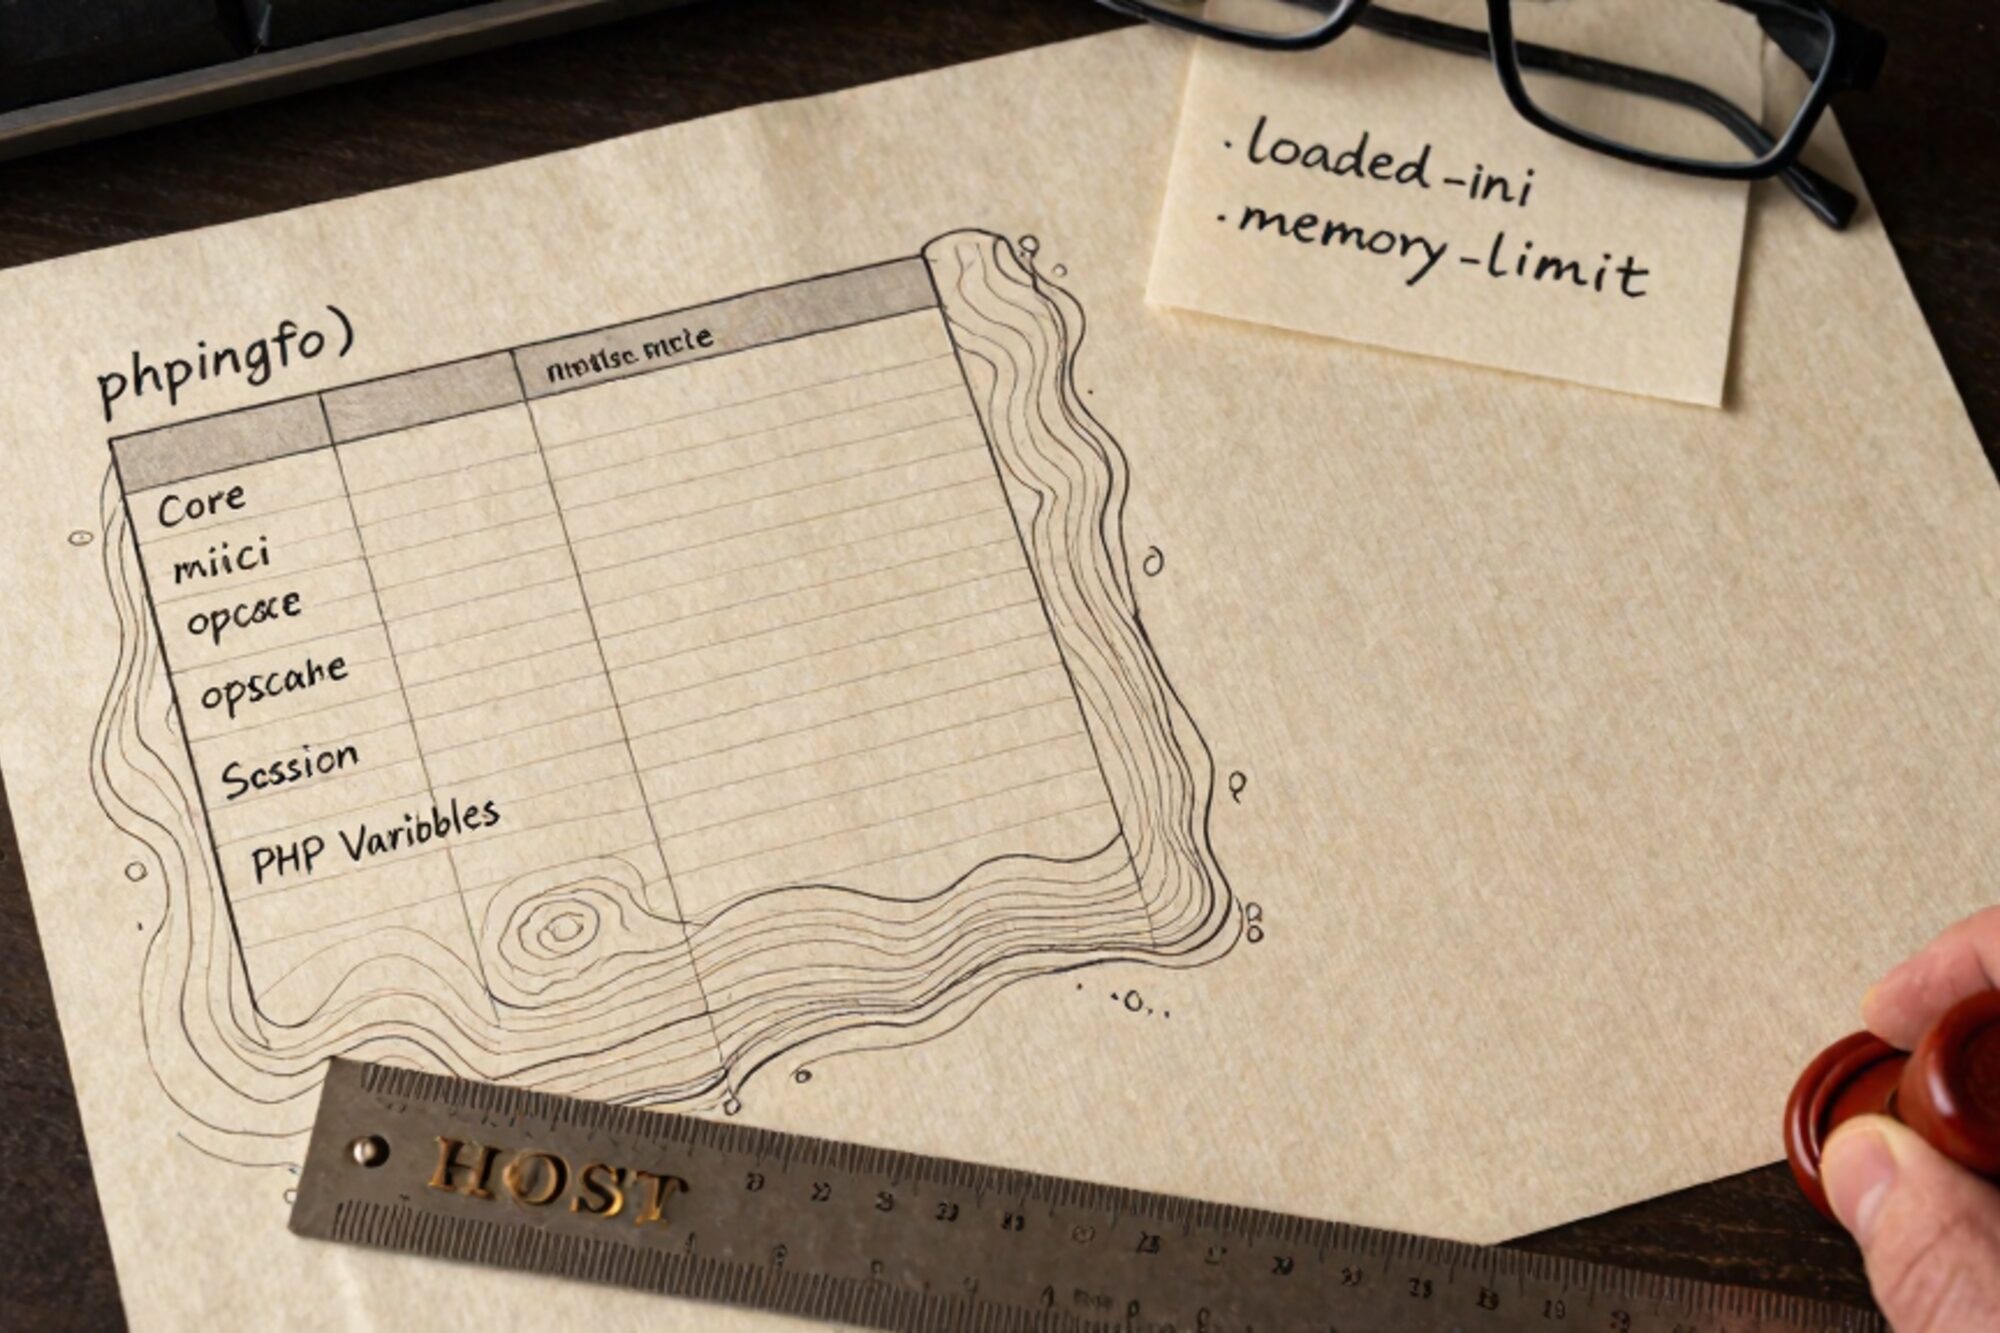 · loaded-ini
· memory-limit
phpingfo)
Core
miici
opcace
opscahe
Session
PHP Varibbles
HOST